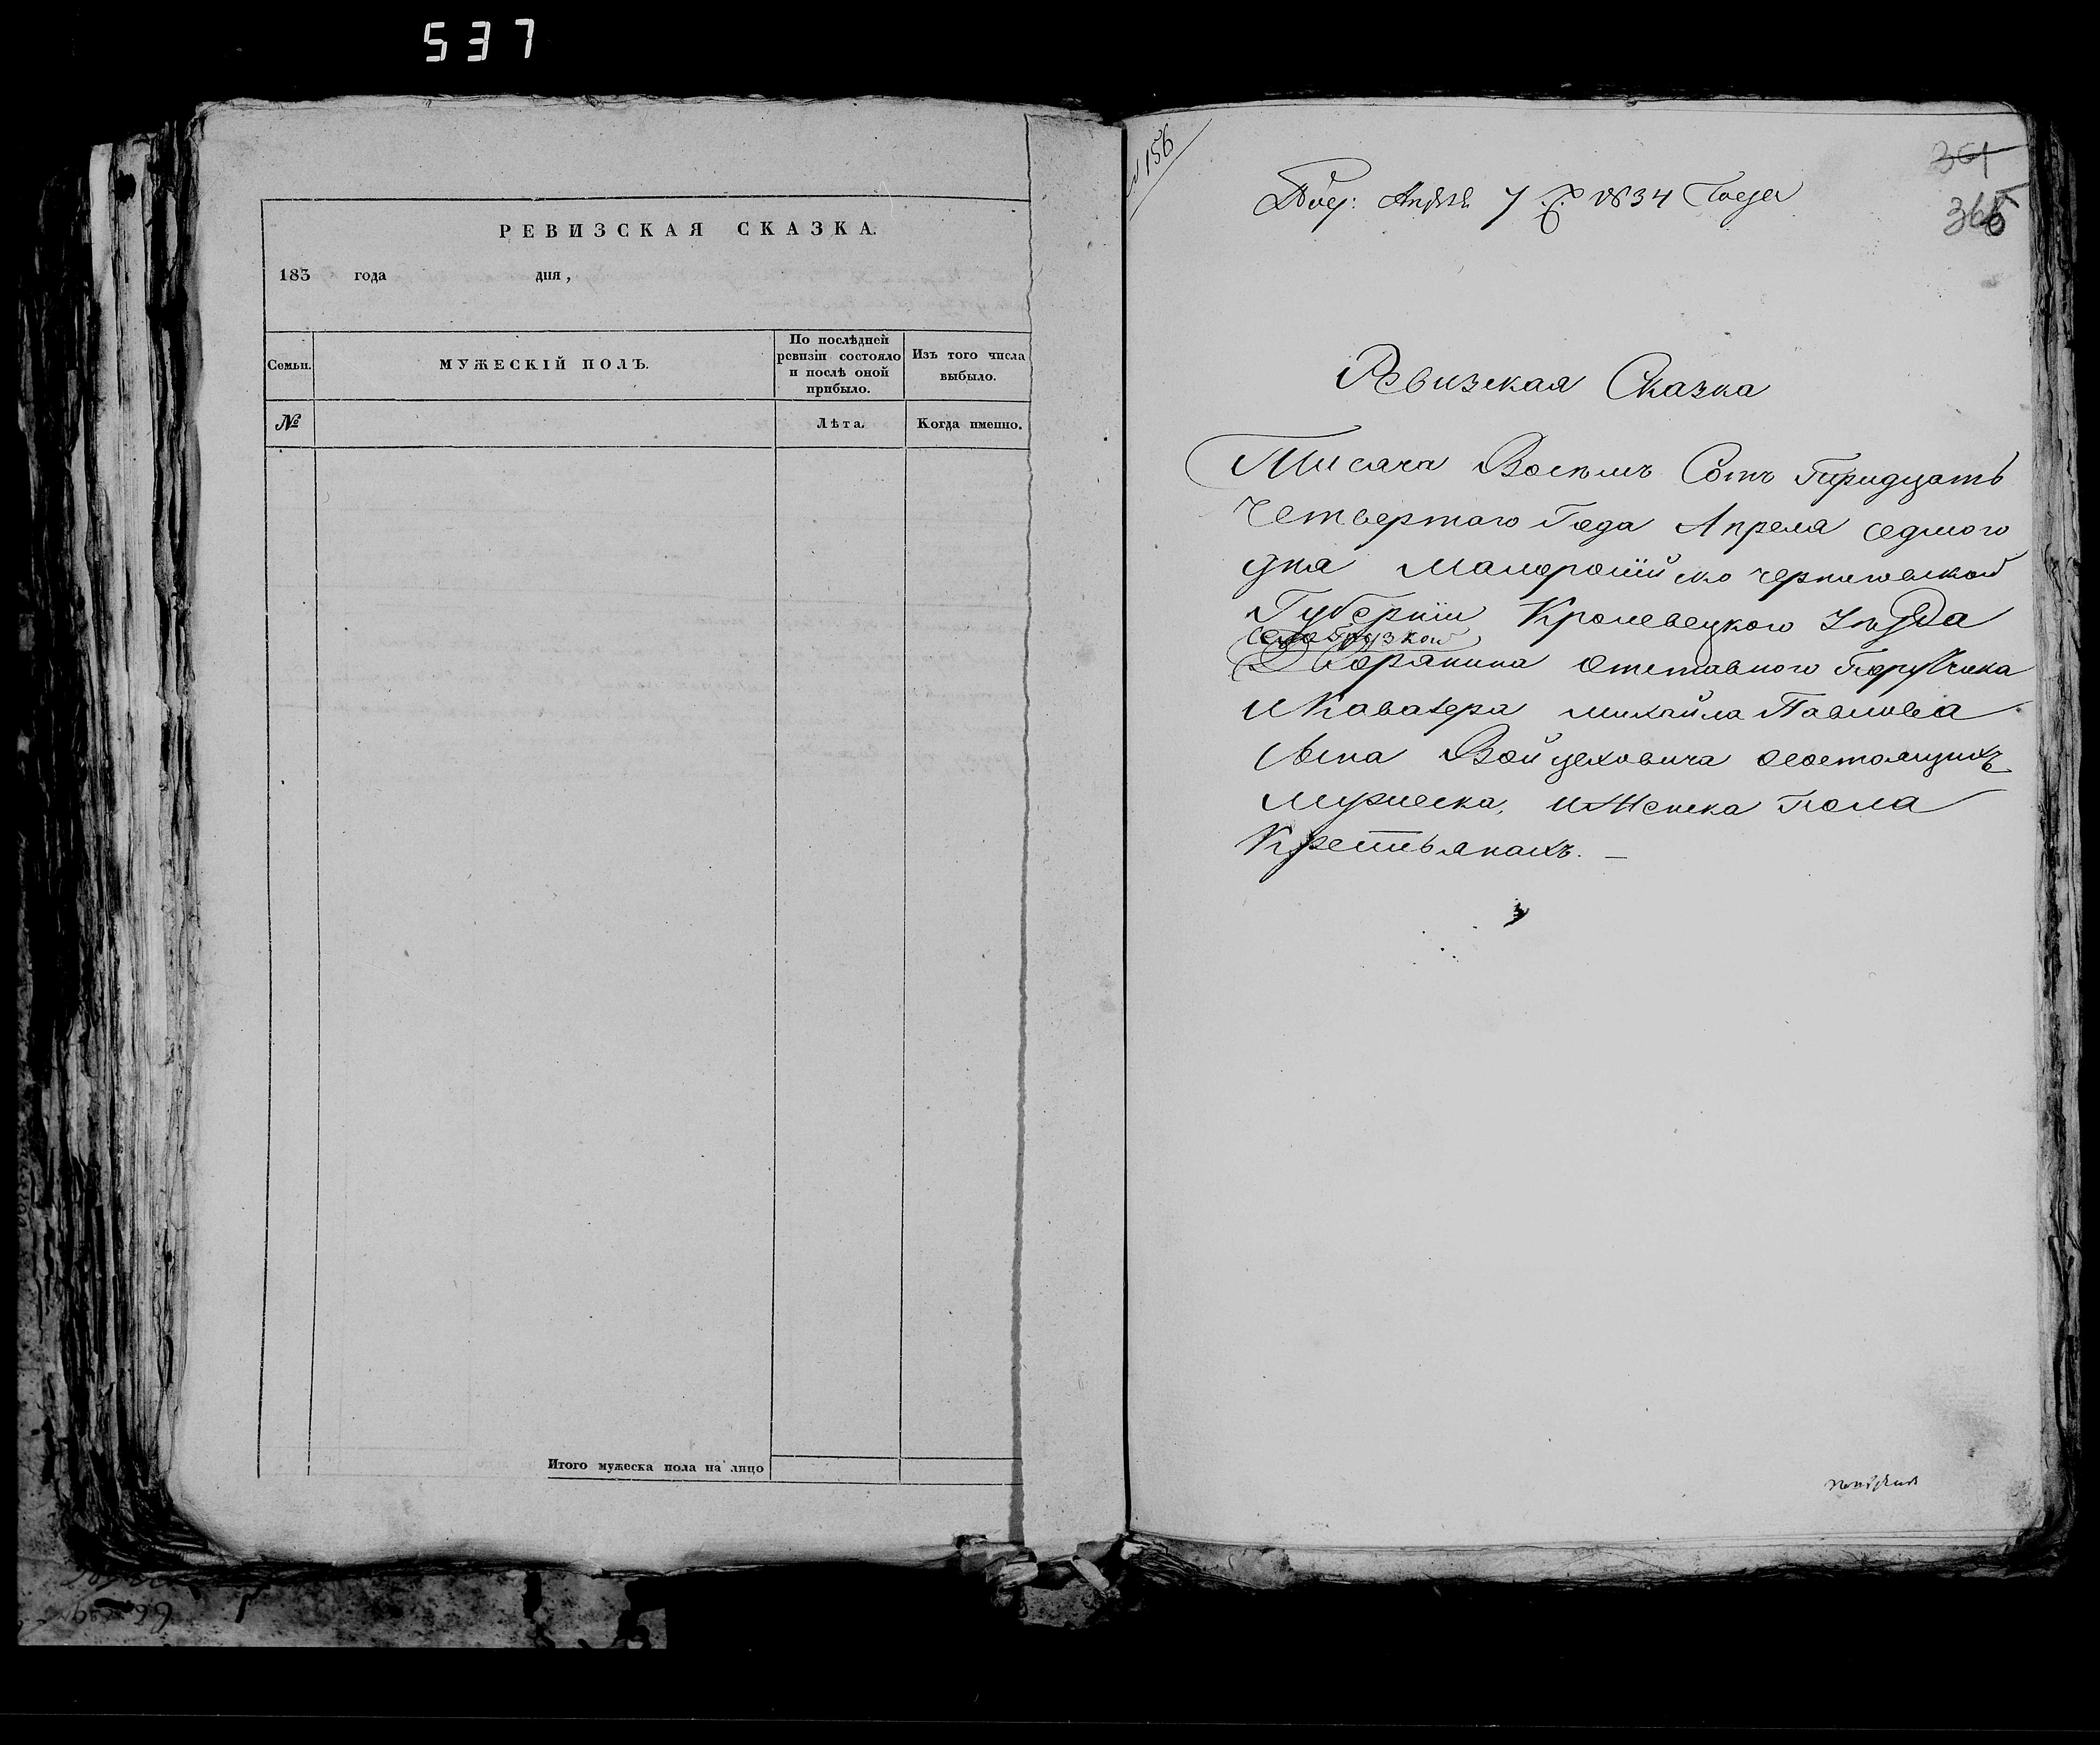 537
РЕВИЗСКАЯ СКАЗКА.
183 года дня,
Семьи.
МУЖЕСКІЙ ПОЛЪ.
По послѣдней ревизіи состояло и послѣ оной прибыло.
Изъ того числа выбыло.
№
Лѣта.
Когда именно.
Итого мужеска пола на лицо
156
361
366
7 1834 Года
Ревизская Сказка
Тисяча Восемъ Сотъ Тридцать
Четвертого Года Апреля седмого
дня Малоросійско черниговской
Губерніи Кролевецкого Уѣзда
села Грузкой
Дворянина отставного Порутчика
и Кавалера михайла Павлова
сына Войцеховича состоящихъ
мужеска, и Женска пола
Крестьянахъ. —